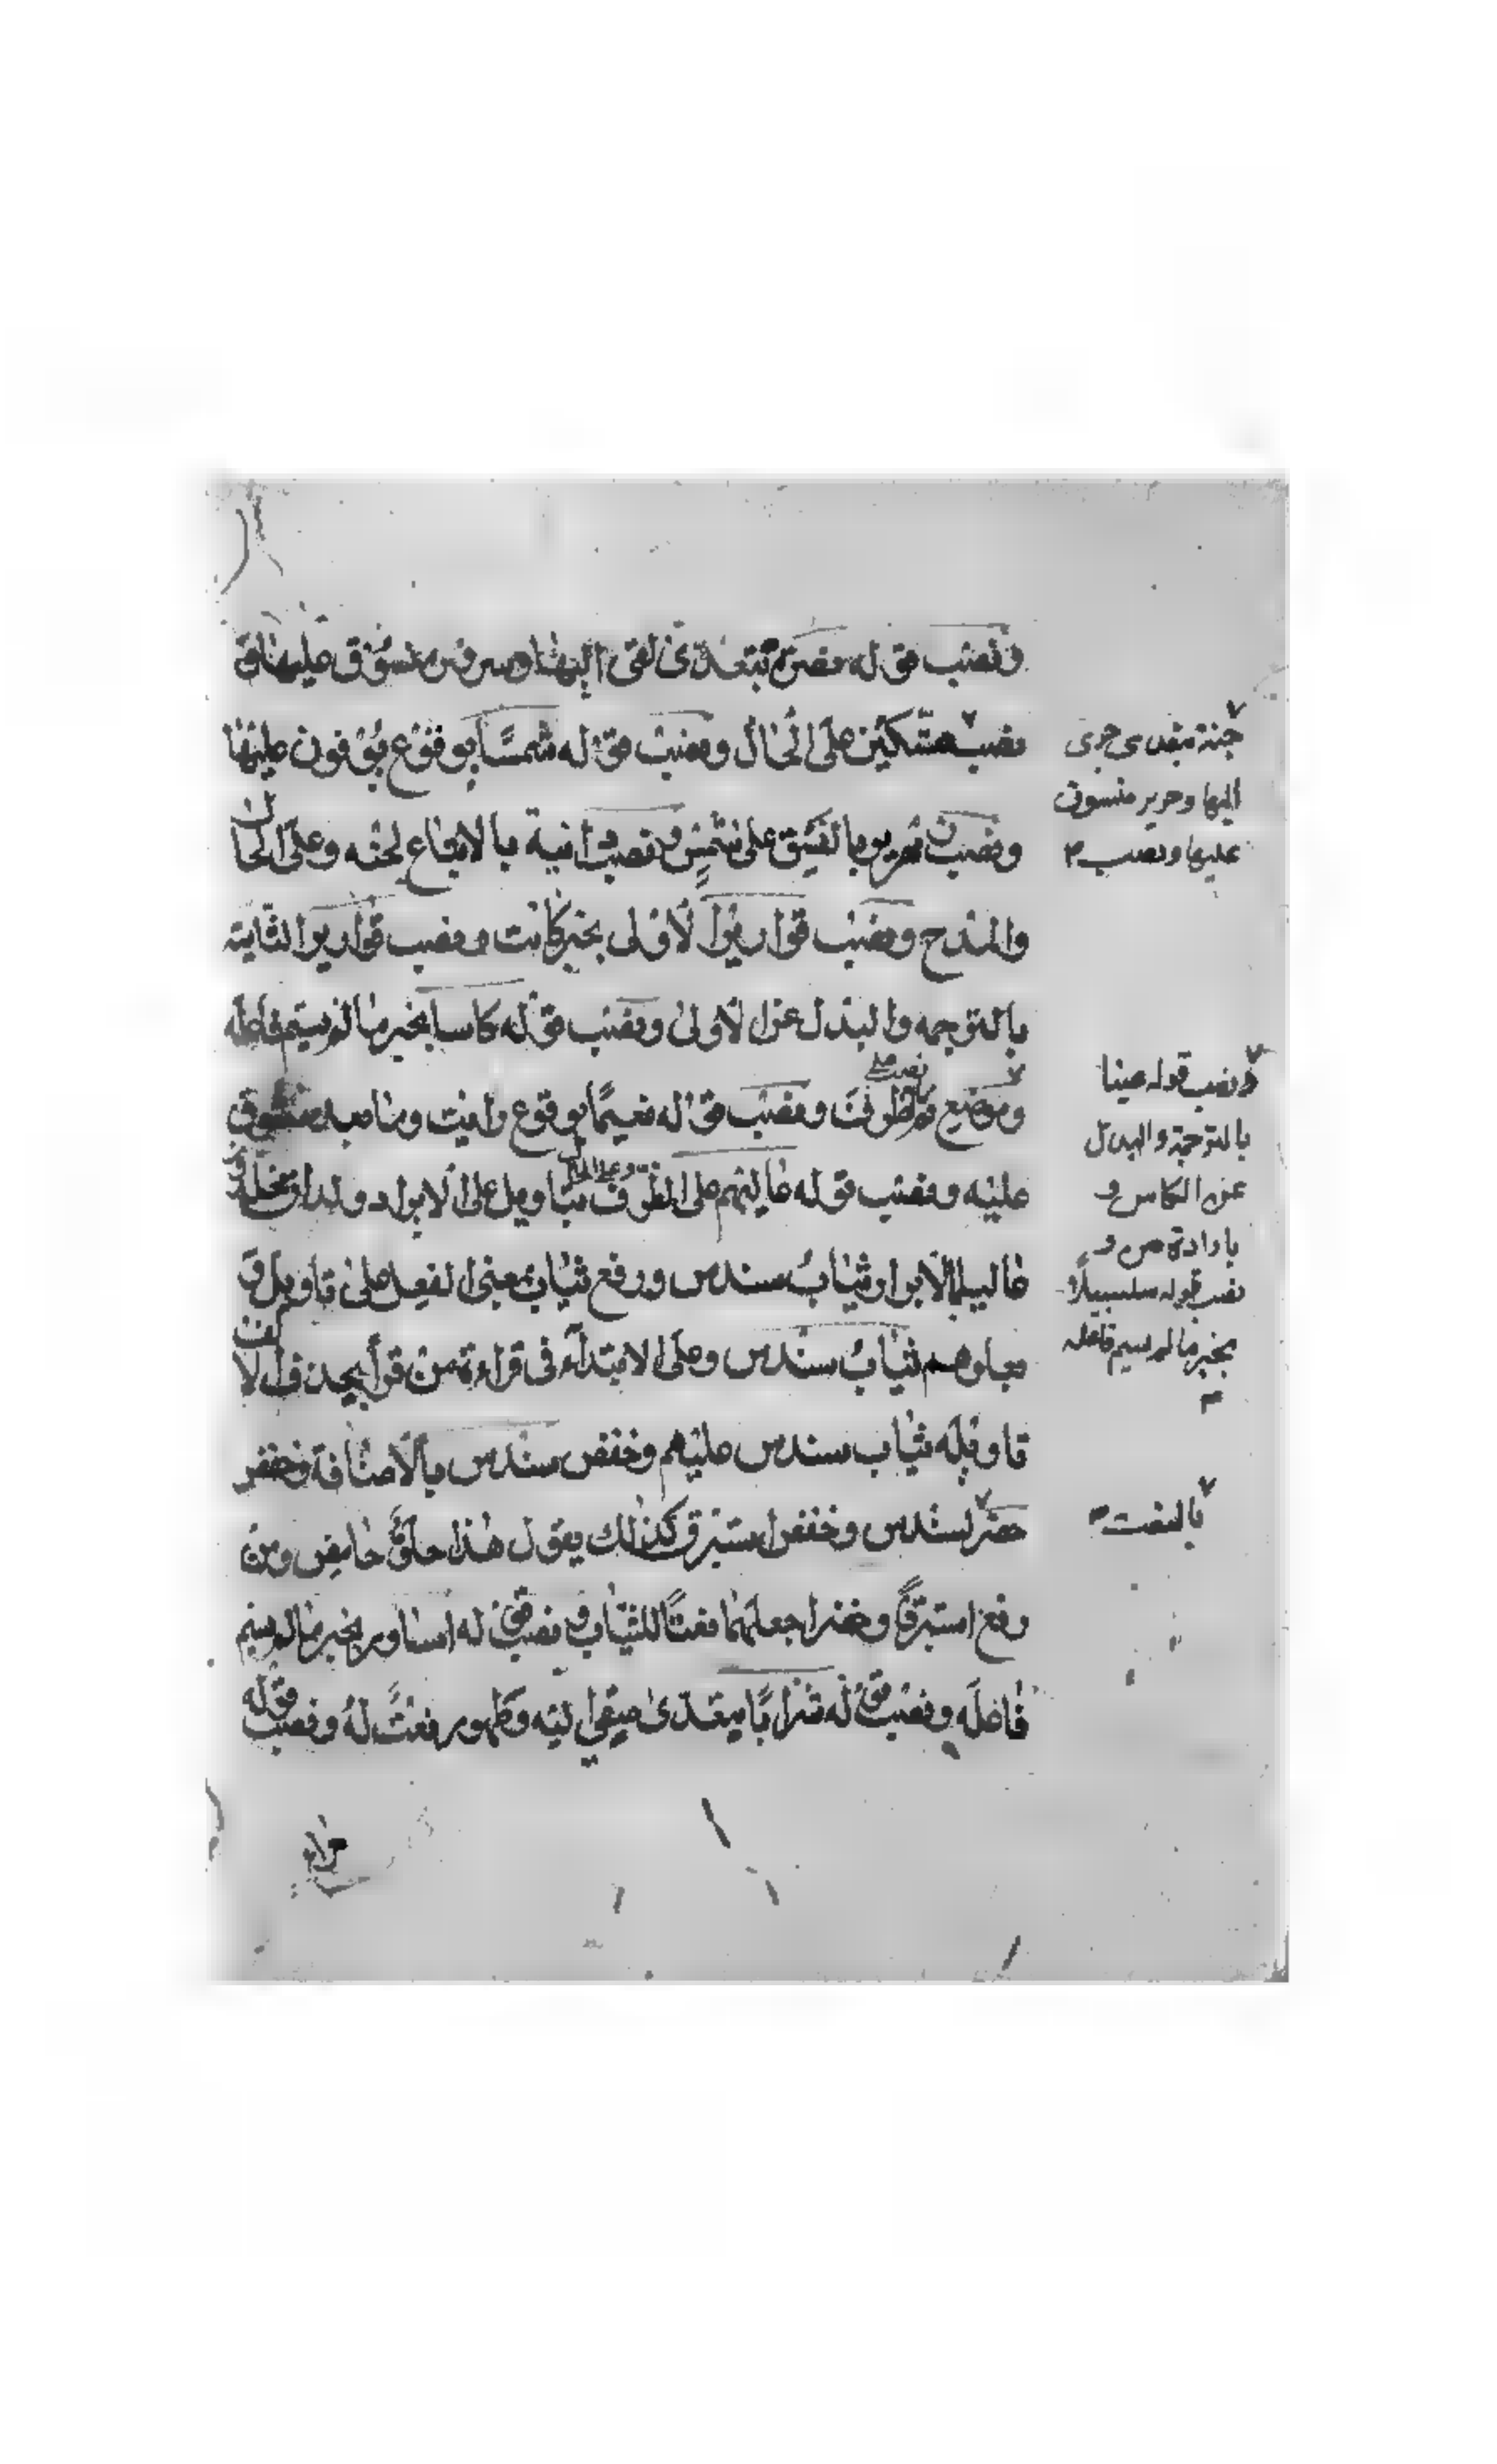 ونصب قوله نضرة بتعدي لقى اليها وسرورا منسوق عليها و
نصب متكئين على الحال ونصب قوله شمسا بوقوع يرون عليها
ونصب زمهريرا بالنسق على شمس ونصب دانية بالاتباع لجنة وعلى الحال
والمدح ونصب قواريرا الاولى بخبر كانت ونصب قواريرا الثانية
بالتوجمه والبدل عن الاولى ونصب قوله كاسا بخبر ما لم يسم فاعله
وموضع ثم نصب على الظرف ونصب قوله نعيما بوقوع رايت وما بعده منسوق
عليه ونصب قوله عاليهم على الظرف وعلى الحال بتاويل على الابرار ولدان مخلدون
عاليا الابرار ثياب سندس ورفع ثياب بمعنى الفعل على تاويل
يعلوهم ثياب سندس وعلى الابتداء في قراءة من قرأ بحذف الالف
تاويله ثياب سندس عليهم وخفض سندس بالاضافة وخفض
خضر لسندس وخفض استبرق كذلك يقول هذا حلق حامض ومن
رفع استبرق وخضر جعلهما نعتا للثياب ونصب قوله اساور بخبر ما لم يسم
فاعله ونصب قوله شرابا بتعدي سقى اليه وطهور نعت له ونصب قوله
جنة بتعدى جزى
اليها وحرير منسوق
عليها ونصب
ونصب قوله عينا
بالترجمة والبدل
عن الكاس و
بارادة من و
نصب قوله سلسبيلا
بخبر ما لم يسم فاعله
بالنعت